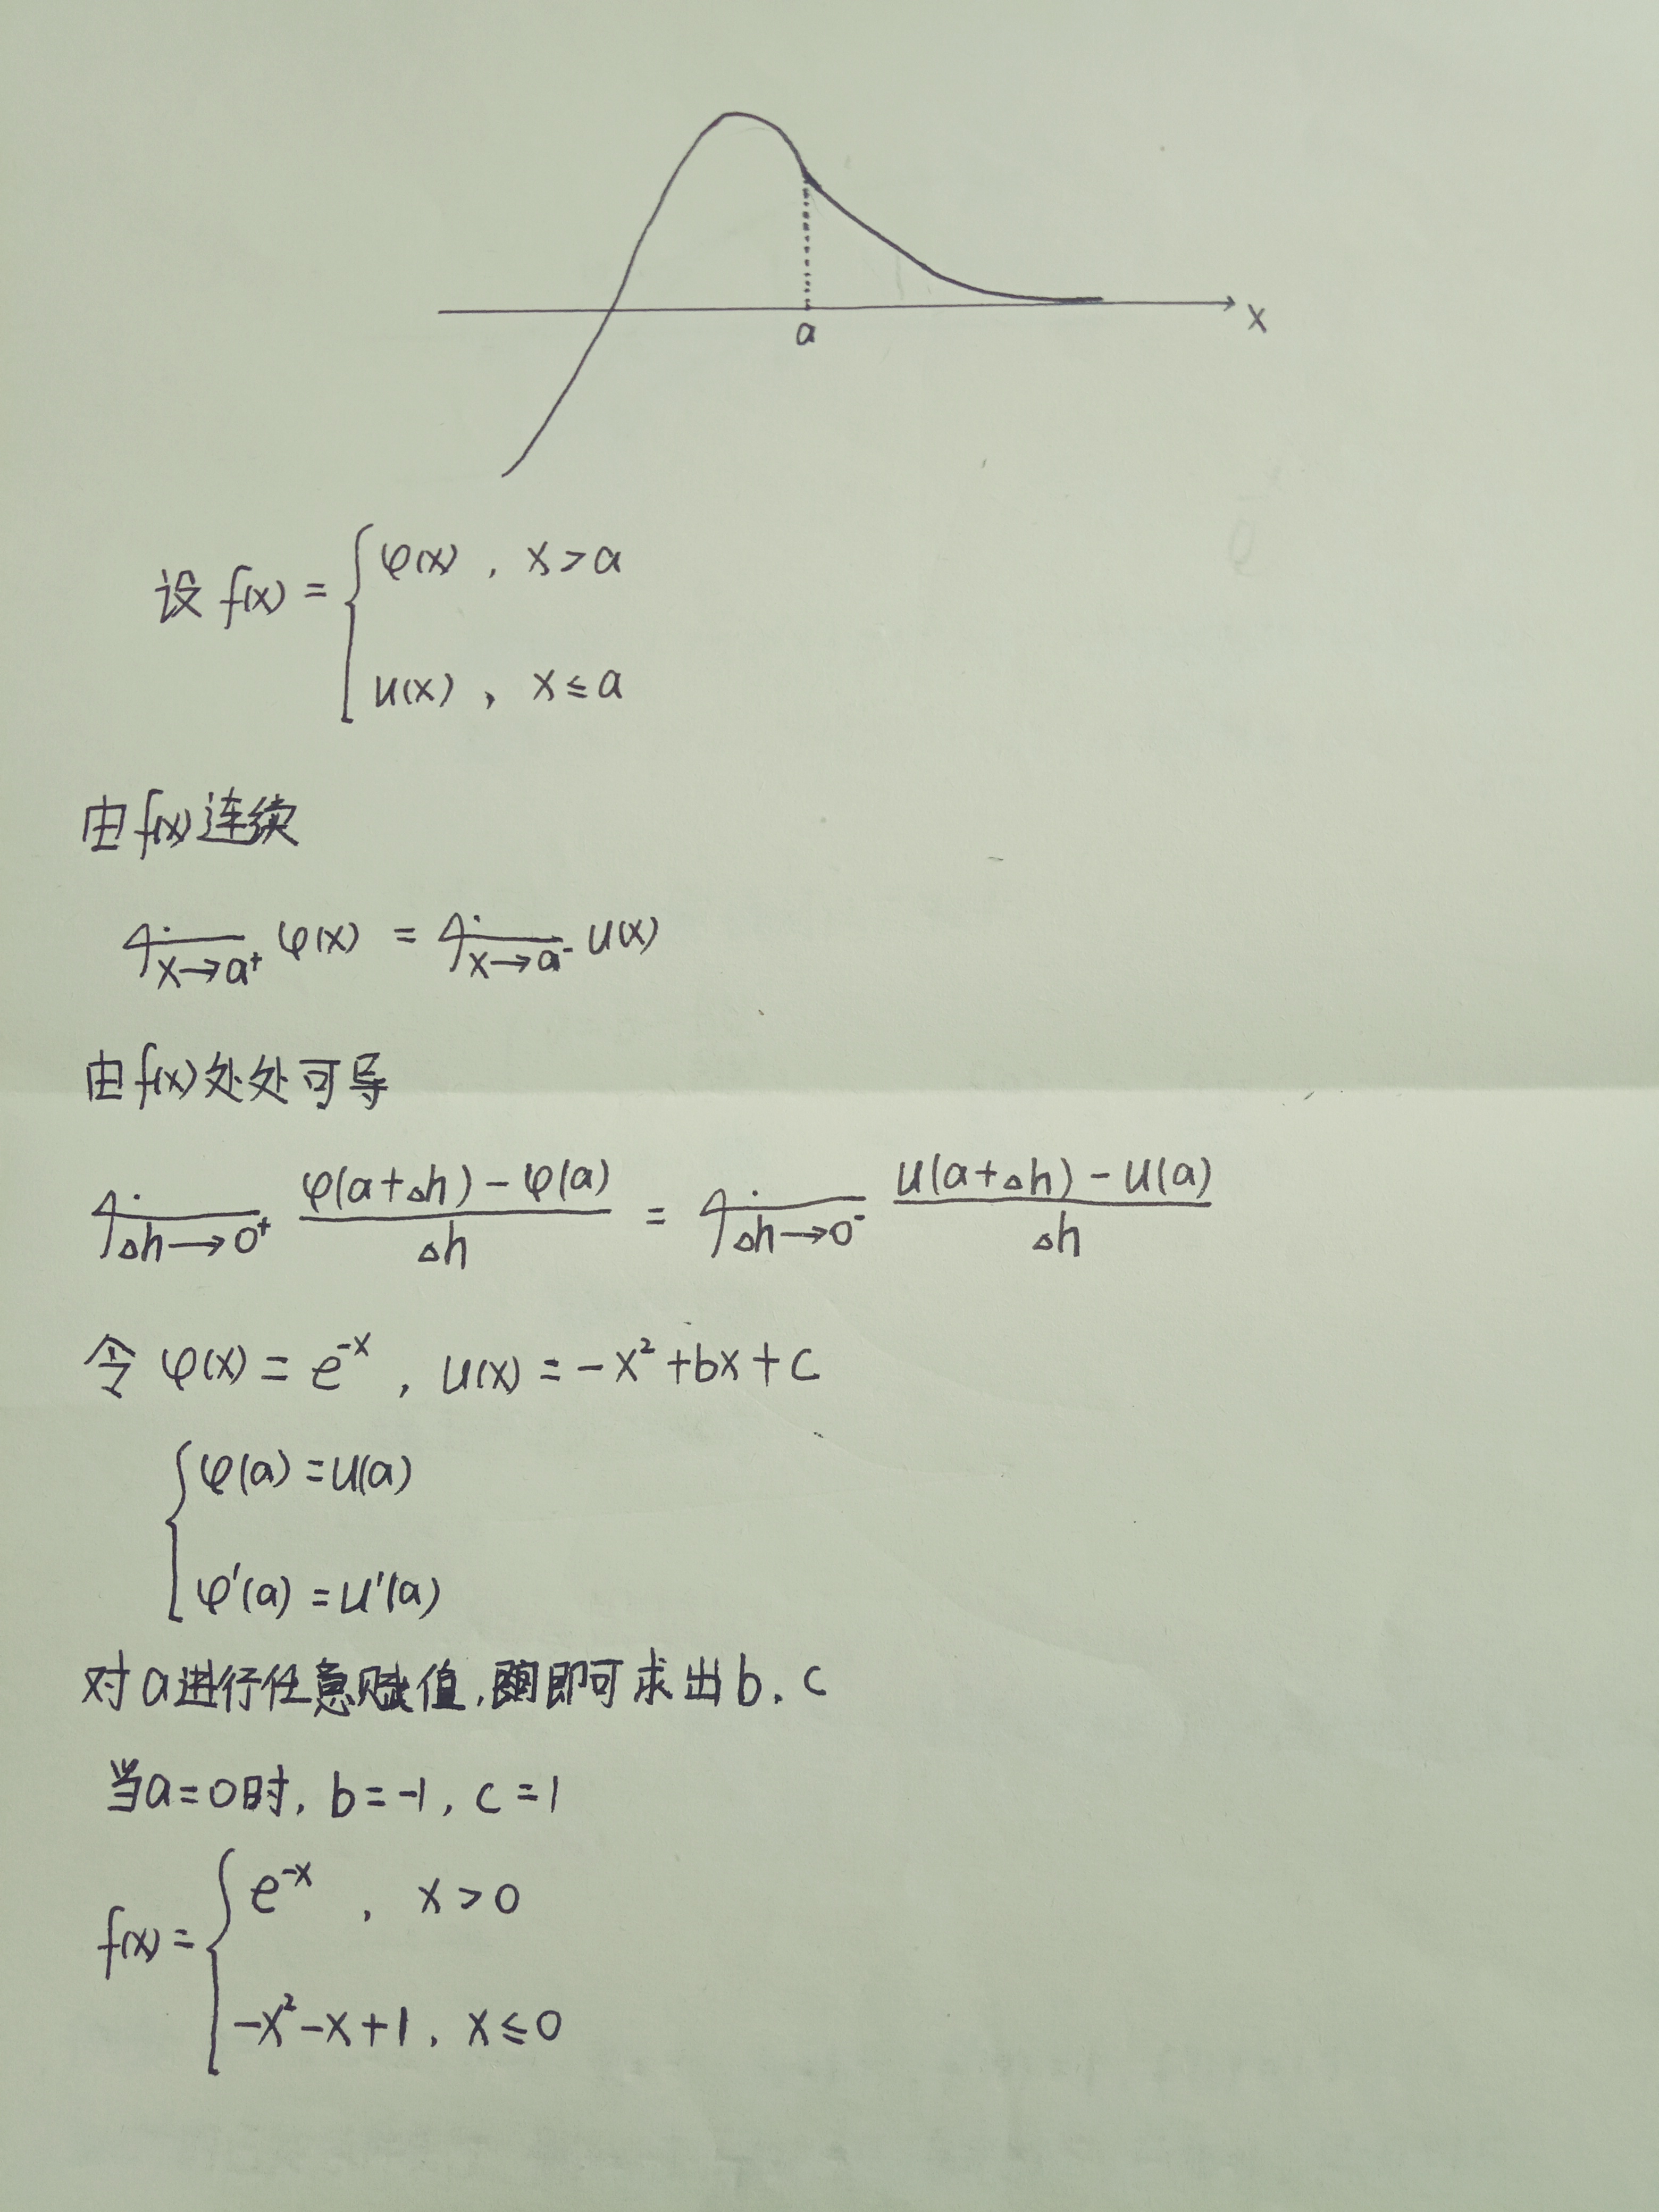 a
x
设 f(x) = { φ(x) , x > a
u(x) , x ≤ a
由f(x)连续
x→a⁺ φ(x) = x→a⁻ u(x)
由f(x)处处可导
Δh→0⁺ φ(a+Δh)-φ(a) / Δh = Δh→0⁻ u(a+Δh)-u(a) / Δh
令 φ(x) = e⁻ˣ , u(x) = -x²+bx+c
{ φ(a) = u(a)
φ'(a) = u'(a)
对a进行任意赋值,即可求出b, c
当a=0时, b=-1, c=1
f(x) = { e⁻ˣ , x > 0
-x²-x+1, x ≤ 0